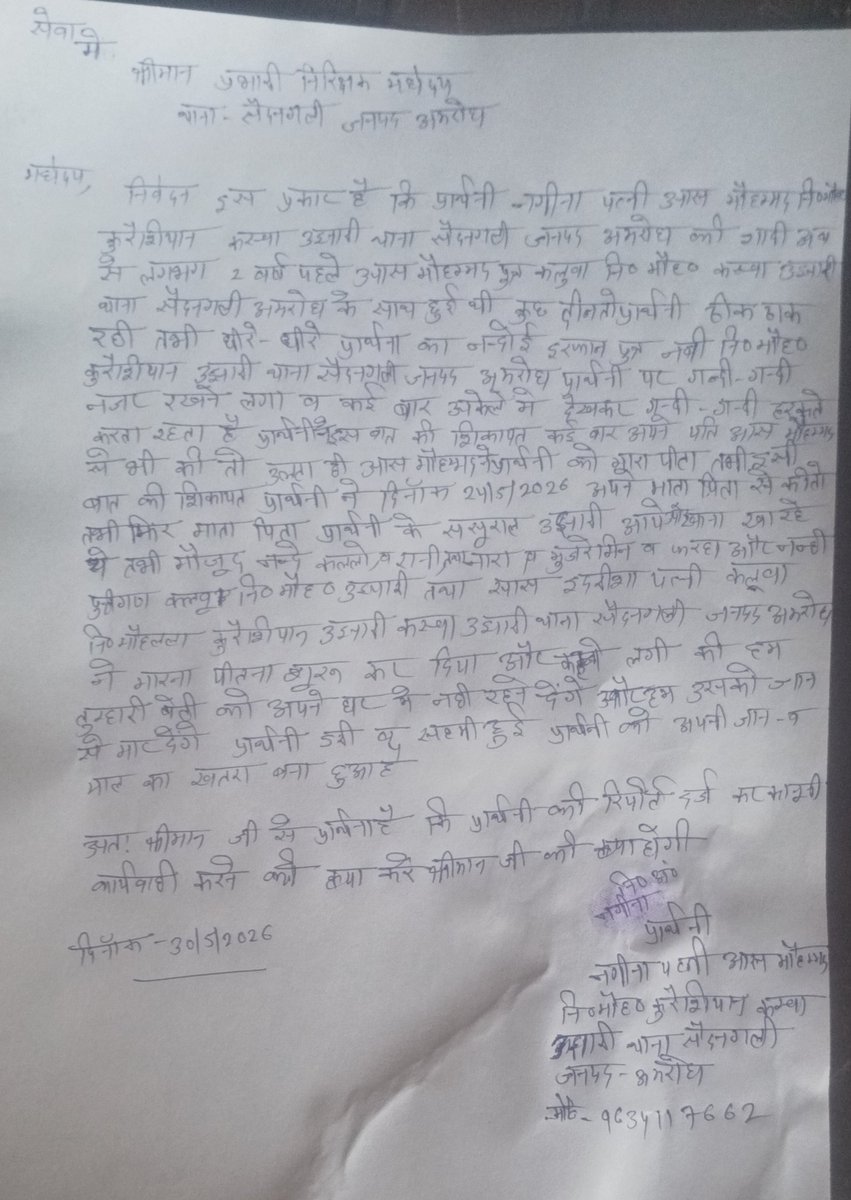 सेवा मे
श्रीमान प्रभारी निरिक्षक महोदय
थाना - सैदनगली जनपद अमरोहा
महोदय,
निवेदन इस प्रकार है कि प्रार्थनी नगीना पत्नी आस मौहम्मद नि०मौह०
कुरैशियान कस्बा उझारी थाना सैदनगली जनपद अमरोहा की शादी अब
से लगभग 2 वर्ष पहले आस मौहम्मद पुत्र कलुवा नि० मौह० कस्बा उझारी
थाना सैदनगली अमरोहा के साथ हुई थी कुछ दीनतो प्रार्थनी ठीक ठाक
रही तभी धीरे-धीरे प्रार्थना का नन्दोई इरफान पुत्र नबी नि०मौह०
कुरैशियान उझारी थाना सैदनगली जनपद अमरोहा प्रार्थनी पर गन्दी-गन्दी
नजर रखने लगा व कई बार अकेले मे देखकर गन्दी-गन्दी हरकते
करता रहता है प्रार्थनी ने इस बात की शिकायत कई बार अपने पति आस मौहम्मद
से भी की तो उल्टा ही आस मौहम्मद ने प्रार्थनी को मारा पीटा तभी इसी
बात की शिकायत प्रार्थनी ने दिनॉक 24/5/2026 अपने माता पिता से की तो
तभी फिर माता पिता प्रार्थनी के ससुराल उझारी आये खाना खा रहे
थे तभी मौजूद नन्दे कललो, व रानी, व मुजरेमिन व फरहा और नन्ही
पुत्रीगण कलवा नि०मौह० उझारी तथा सास इदरीशा पत्नी कलुवा
नि०मौहलला कुरैशियान उझारी कस्बा उझारी थाना सैदनगली जनपद अमरोहा
ने मारना पीटना शुरू कर दिया और कहने लगी की हम
तुम्हारी बेटी को अपने घर मे नही रहने देंगे और हम उसको जान
से मार देगे प्रार्थनी डरी व सहमी हुई प्रार्थनी को अपनी जान-व
माल का खतरा बना हुआ है
अतः श्रीमान जी से प्रार्थना है कि प्रार्थनी की रिपोर्ट दर्ज कर कानूनी
कार्यवाही करने की कृपा करे श्रीमान जी की कृपा होगी
दिनॉक - 30/5/2026
नि०अं०
नगीना
प्रार्थनी
नगीना पत्नी आस मौहम्मद
नि०मौह० कुरैशियान कस्बा
उझारी थाना सैदनगली
जनपद - अमरोहा
मो० - 9634117662